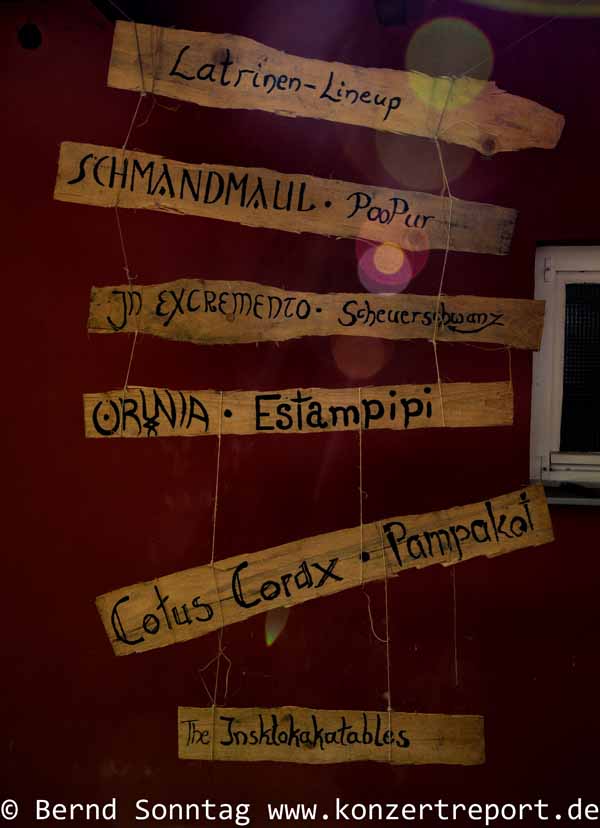 Latrinen-Lineup
SCHMANDMAUL · PooPur
IN EXCREMENTO · Scheuerschwanz
ORINIA · Estampipi
Cotus Corax · Pampakot
The Insklokakatables
© Bernd Sonntag www.konzertreport.de